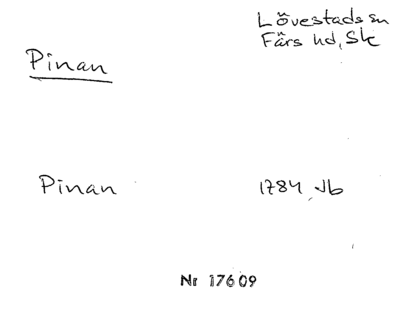 Lövestads sn
Färs hd, Sk
Pinan
Pinan 1784 Jb
Nr 17609